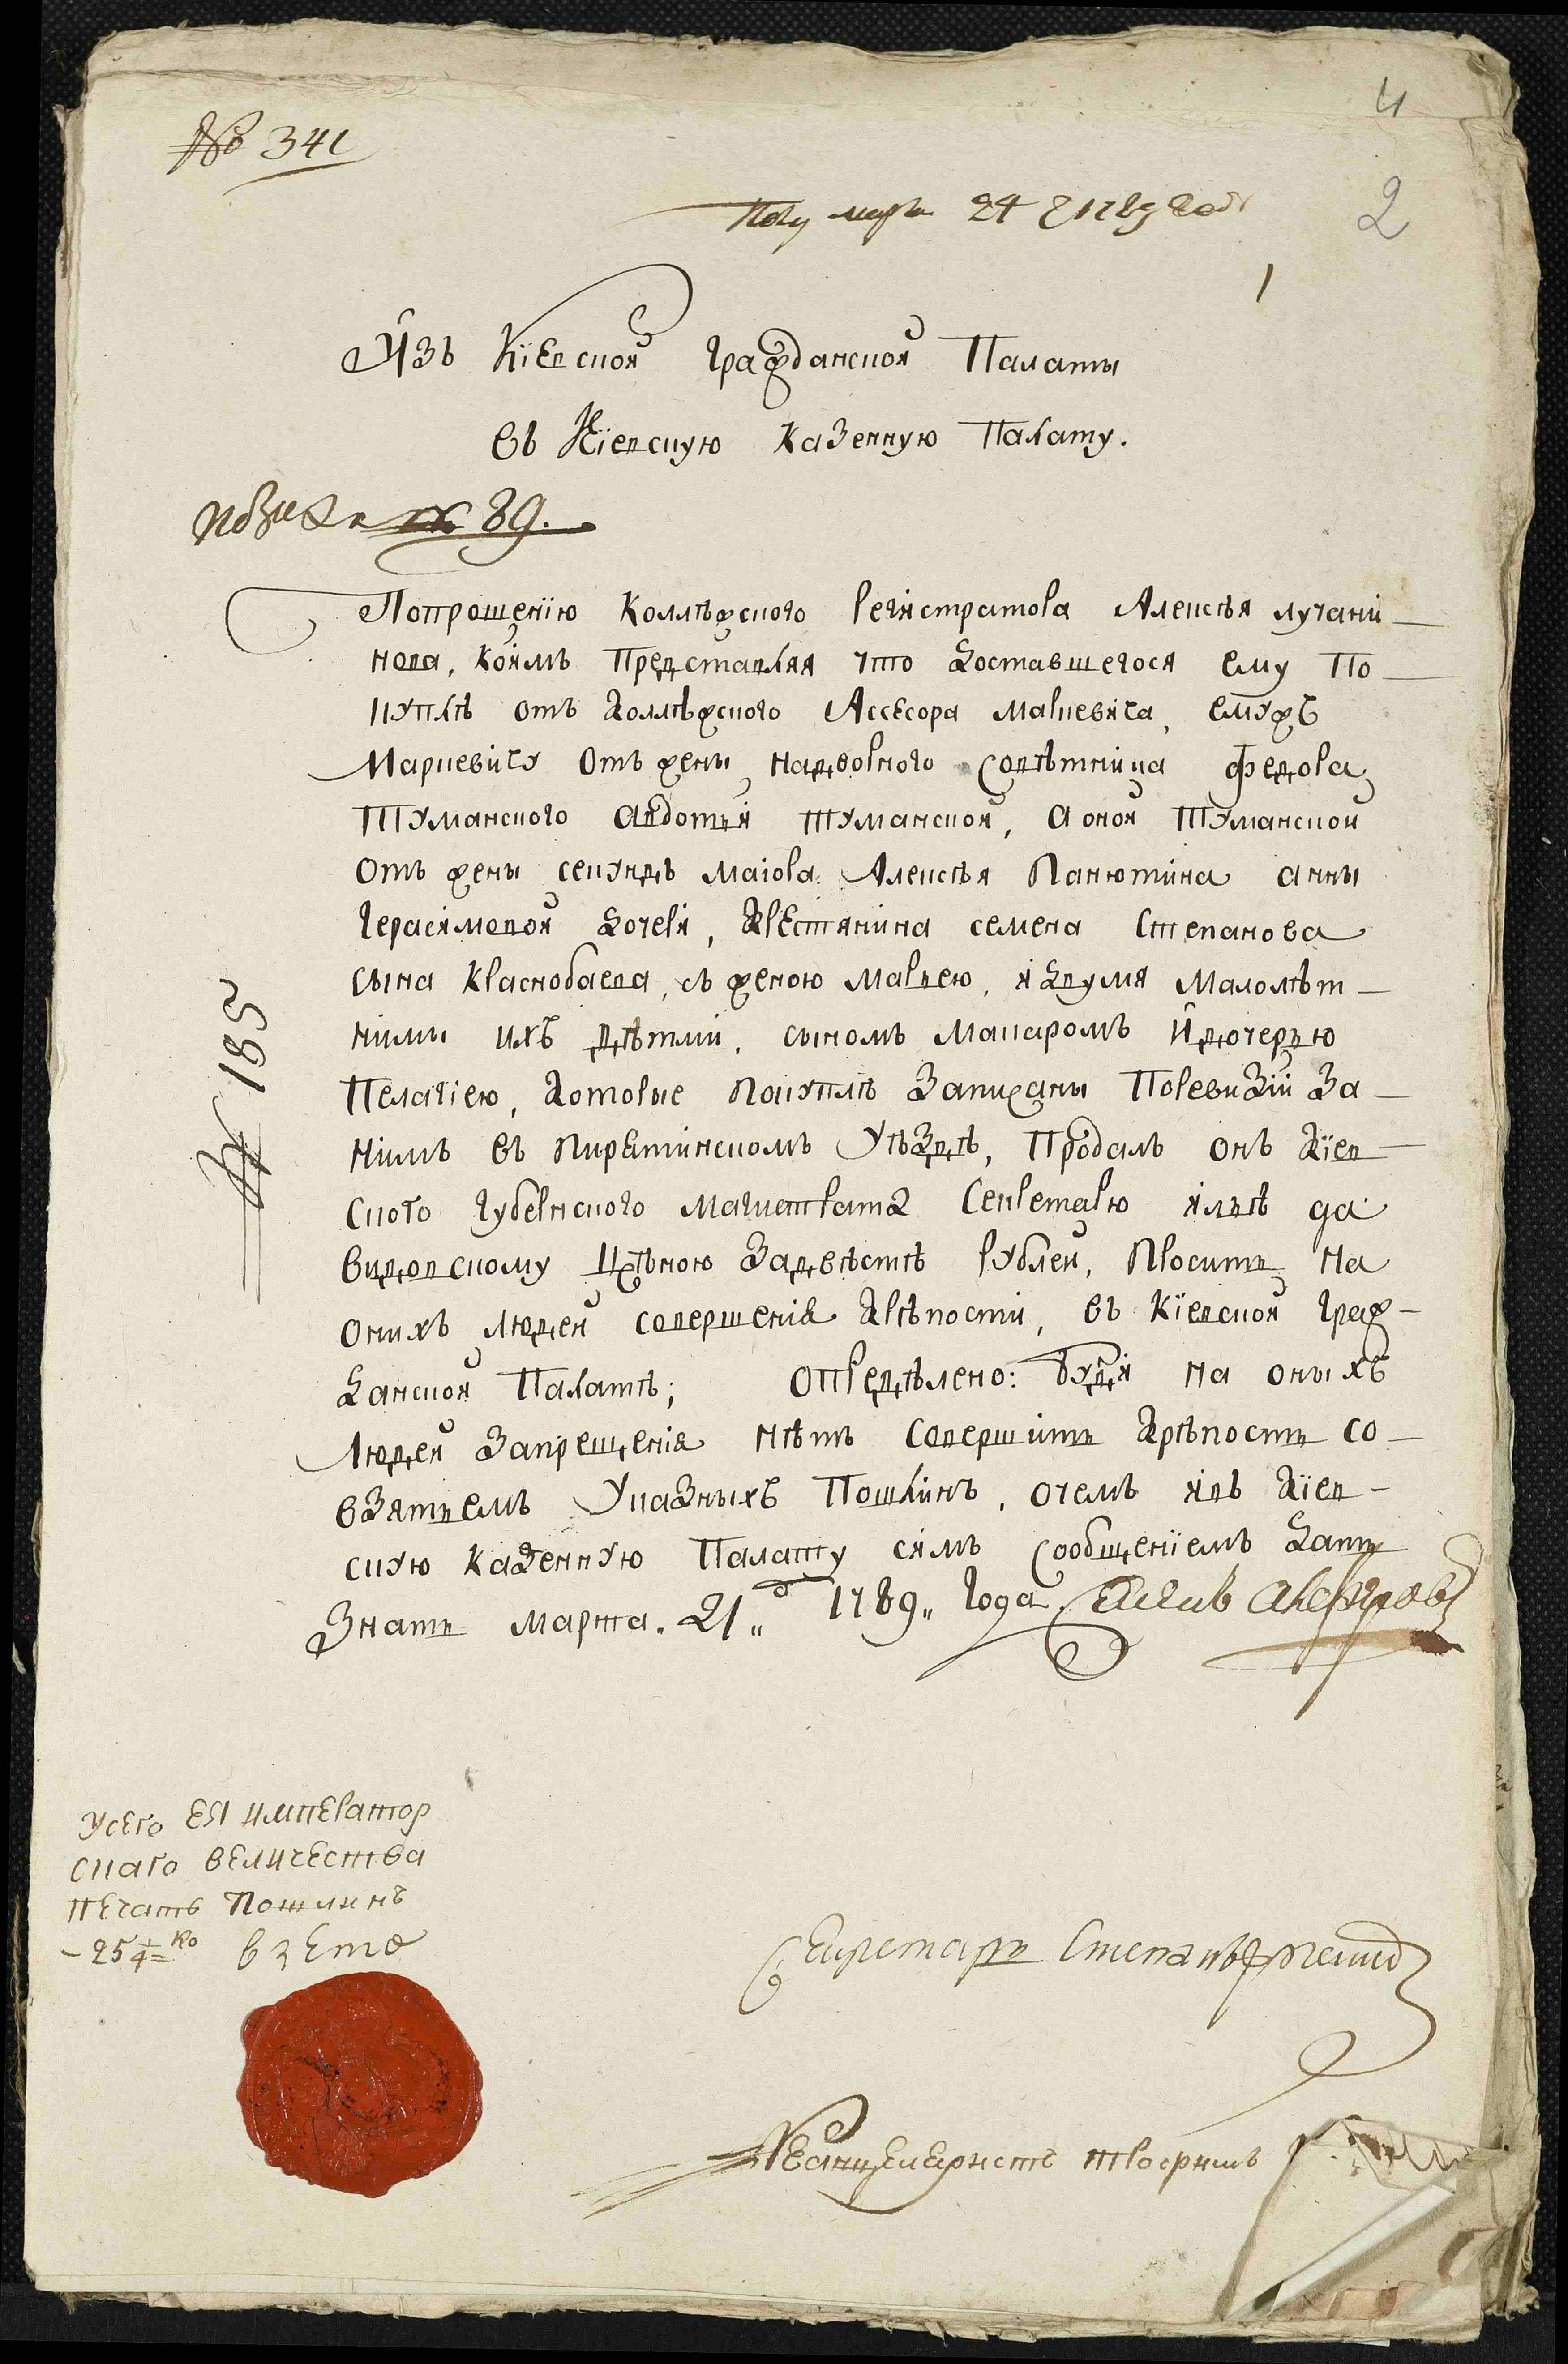 № 341
4
Полу марта 24 д 1789 года
2
1
Изъ Кіевской Гражданской Палаты
въ Кіевскую Казенную Палату.
№ 89.
Попрошенїю Коллѣжского Регистратора Алексѣя лучани-
нова, коимъ Представляя что Доставшегося ему По
купкѣ отъ Коллѣжского Ассесора Маркевича, емужъ
Маркевичу Отъ жены надворного совѣтника Федора
Туманского Авдотьи Туманской, а оной Туманской
Отъ жены секундъ маіора Алексѣя Панютина анны
Герасимовой Дочери, Крестянина семена Степанова
сына Краснобаева, съ женою Марьею, и Двумя Малолѣт-
ними ихъ дѣтми, сыномъ Макаромъ и дочерью
Пелагіею, Которые Покупкѣ Записаны Поревизіи За
нимъ въ Пирятинскомъ Уѣздѣ, Продалъ онъ Кїев-
ского Губернского Магистрата Секретарю ильѣ да
видовскому Цѣною Задвѣстѣ Рублей, Проситъ На
онихъ людей совершенія Крѣпости, въ Кїевской Граж-
Данской Палатѣ; Опредѣлено: буди на оныхъ
Людей Запрещенія Нѣтъ Совершить Крѣпость со-
взятьемъ Указныхъ Пошлинъ, очемъ ивъ Кїев-
скую Казенную Палату симъ Сообщенїемъ Дать
Знать марта. 21 д 1789 Года.
№ 185
Усего ЕЯ император
скаго величества
печать Пошлинъ
- 25 1/4 ко взето
Секретарь Степанъ
Канцеляристъ